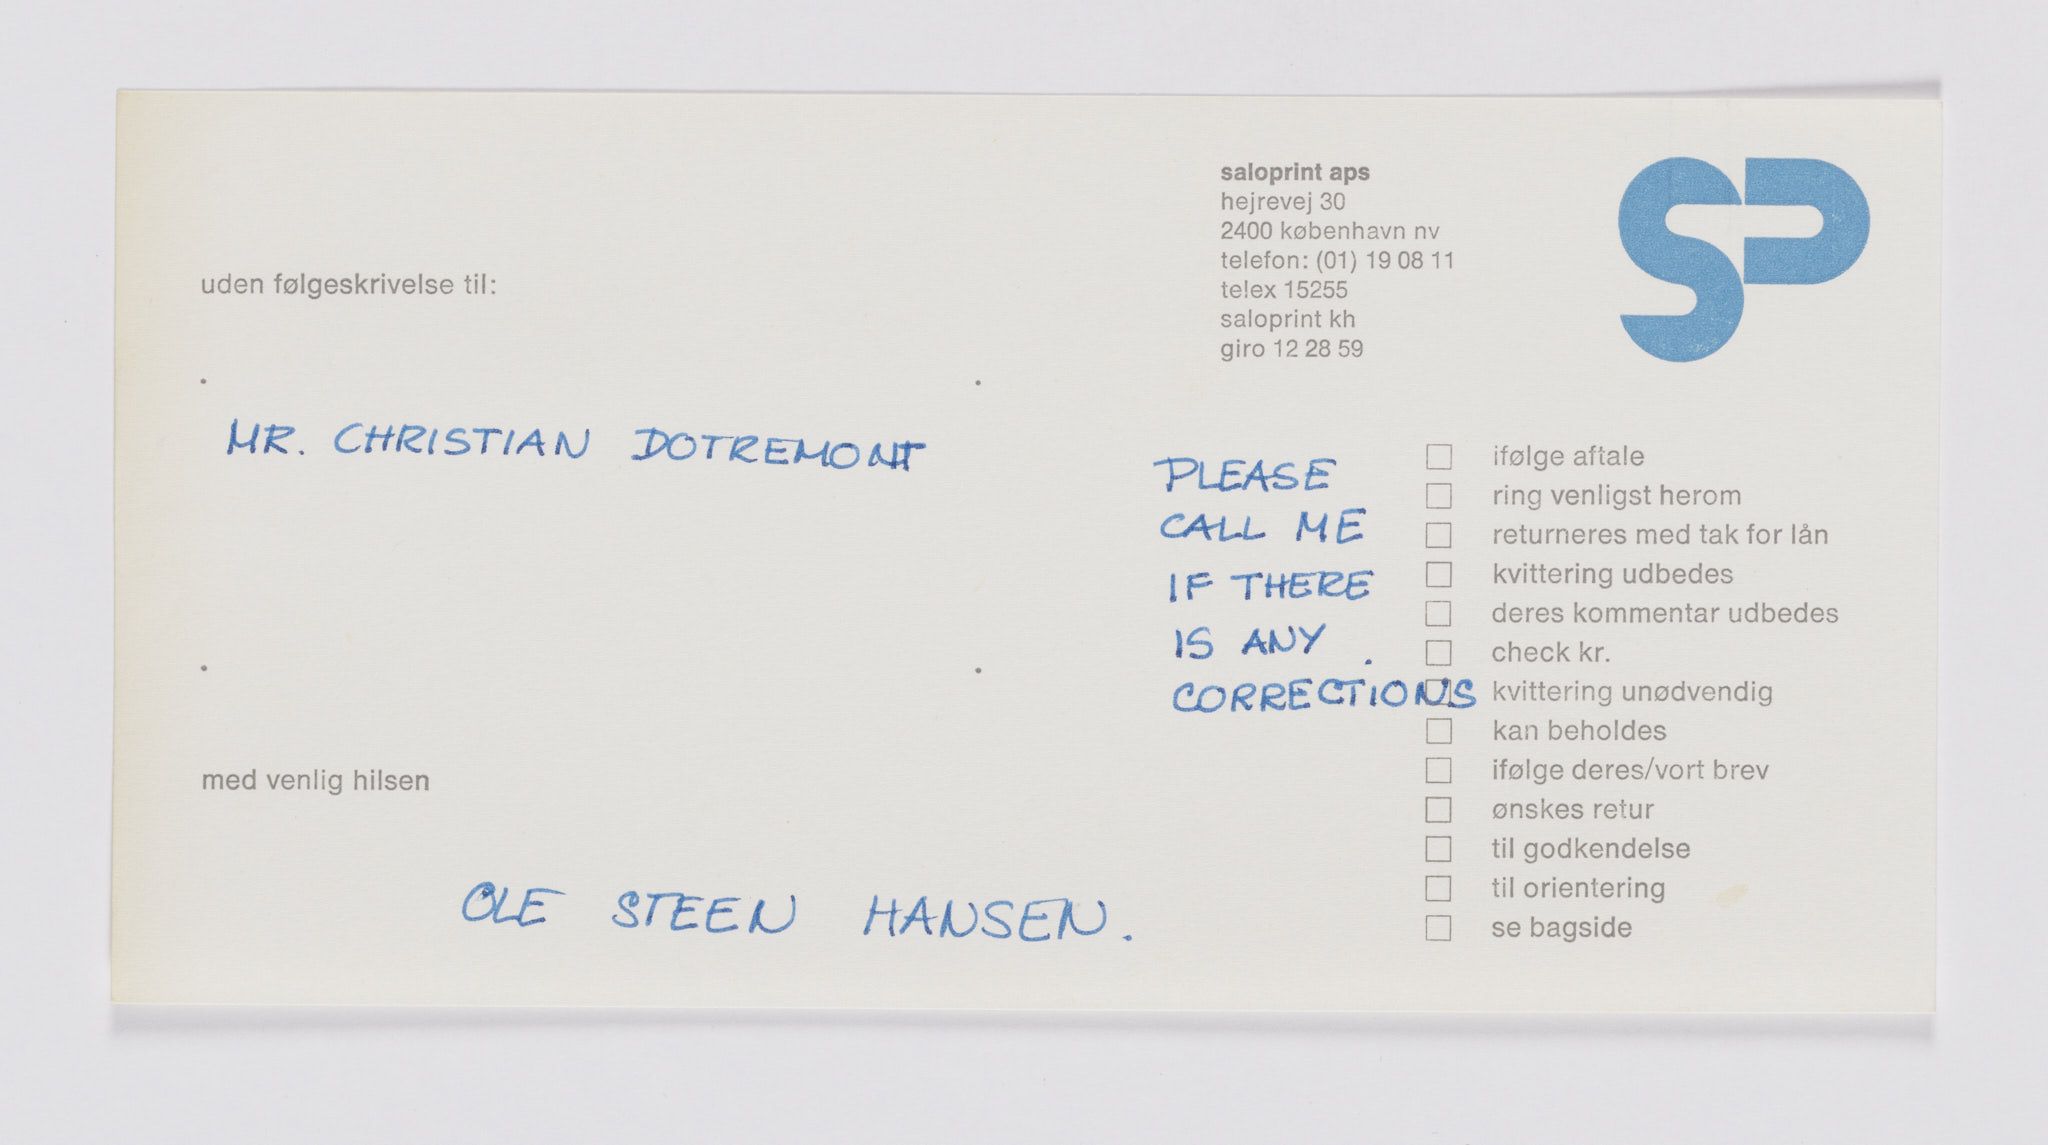 saloprint aps
hejrevej 30
2400 københavn nv
telefon: (01) 19 08 11
telex 15255
saloprint kh
giro 12 28 59
SP
uden følgeskrivelse til:
MR. CHRISTIAN DOTREMONT
PLEASE
CALL ME
IF THERE
IS ANY
CORRECTIONS
ifølge aftale
ring venligst herom
returneres med tak for lån
kvittering udbedes
deres kommentar udbedes
check kr.
kvittering unødvendig
kan beholdes
ifølge deres/vort brev
ønskes retur
til godkendelse
til orientering
se bagside
med venlig hilsen
OLE STEEN HANSEN.